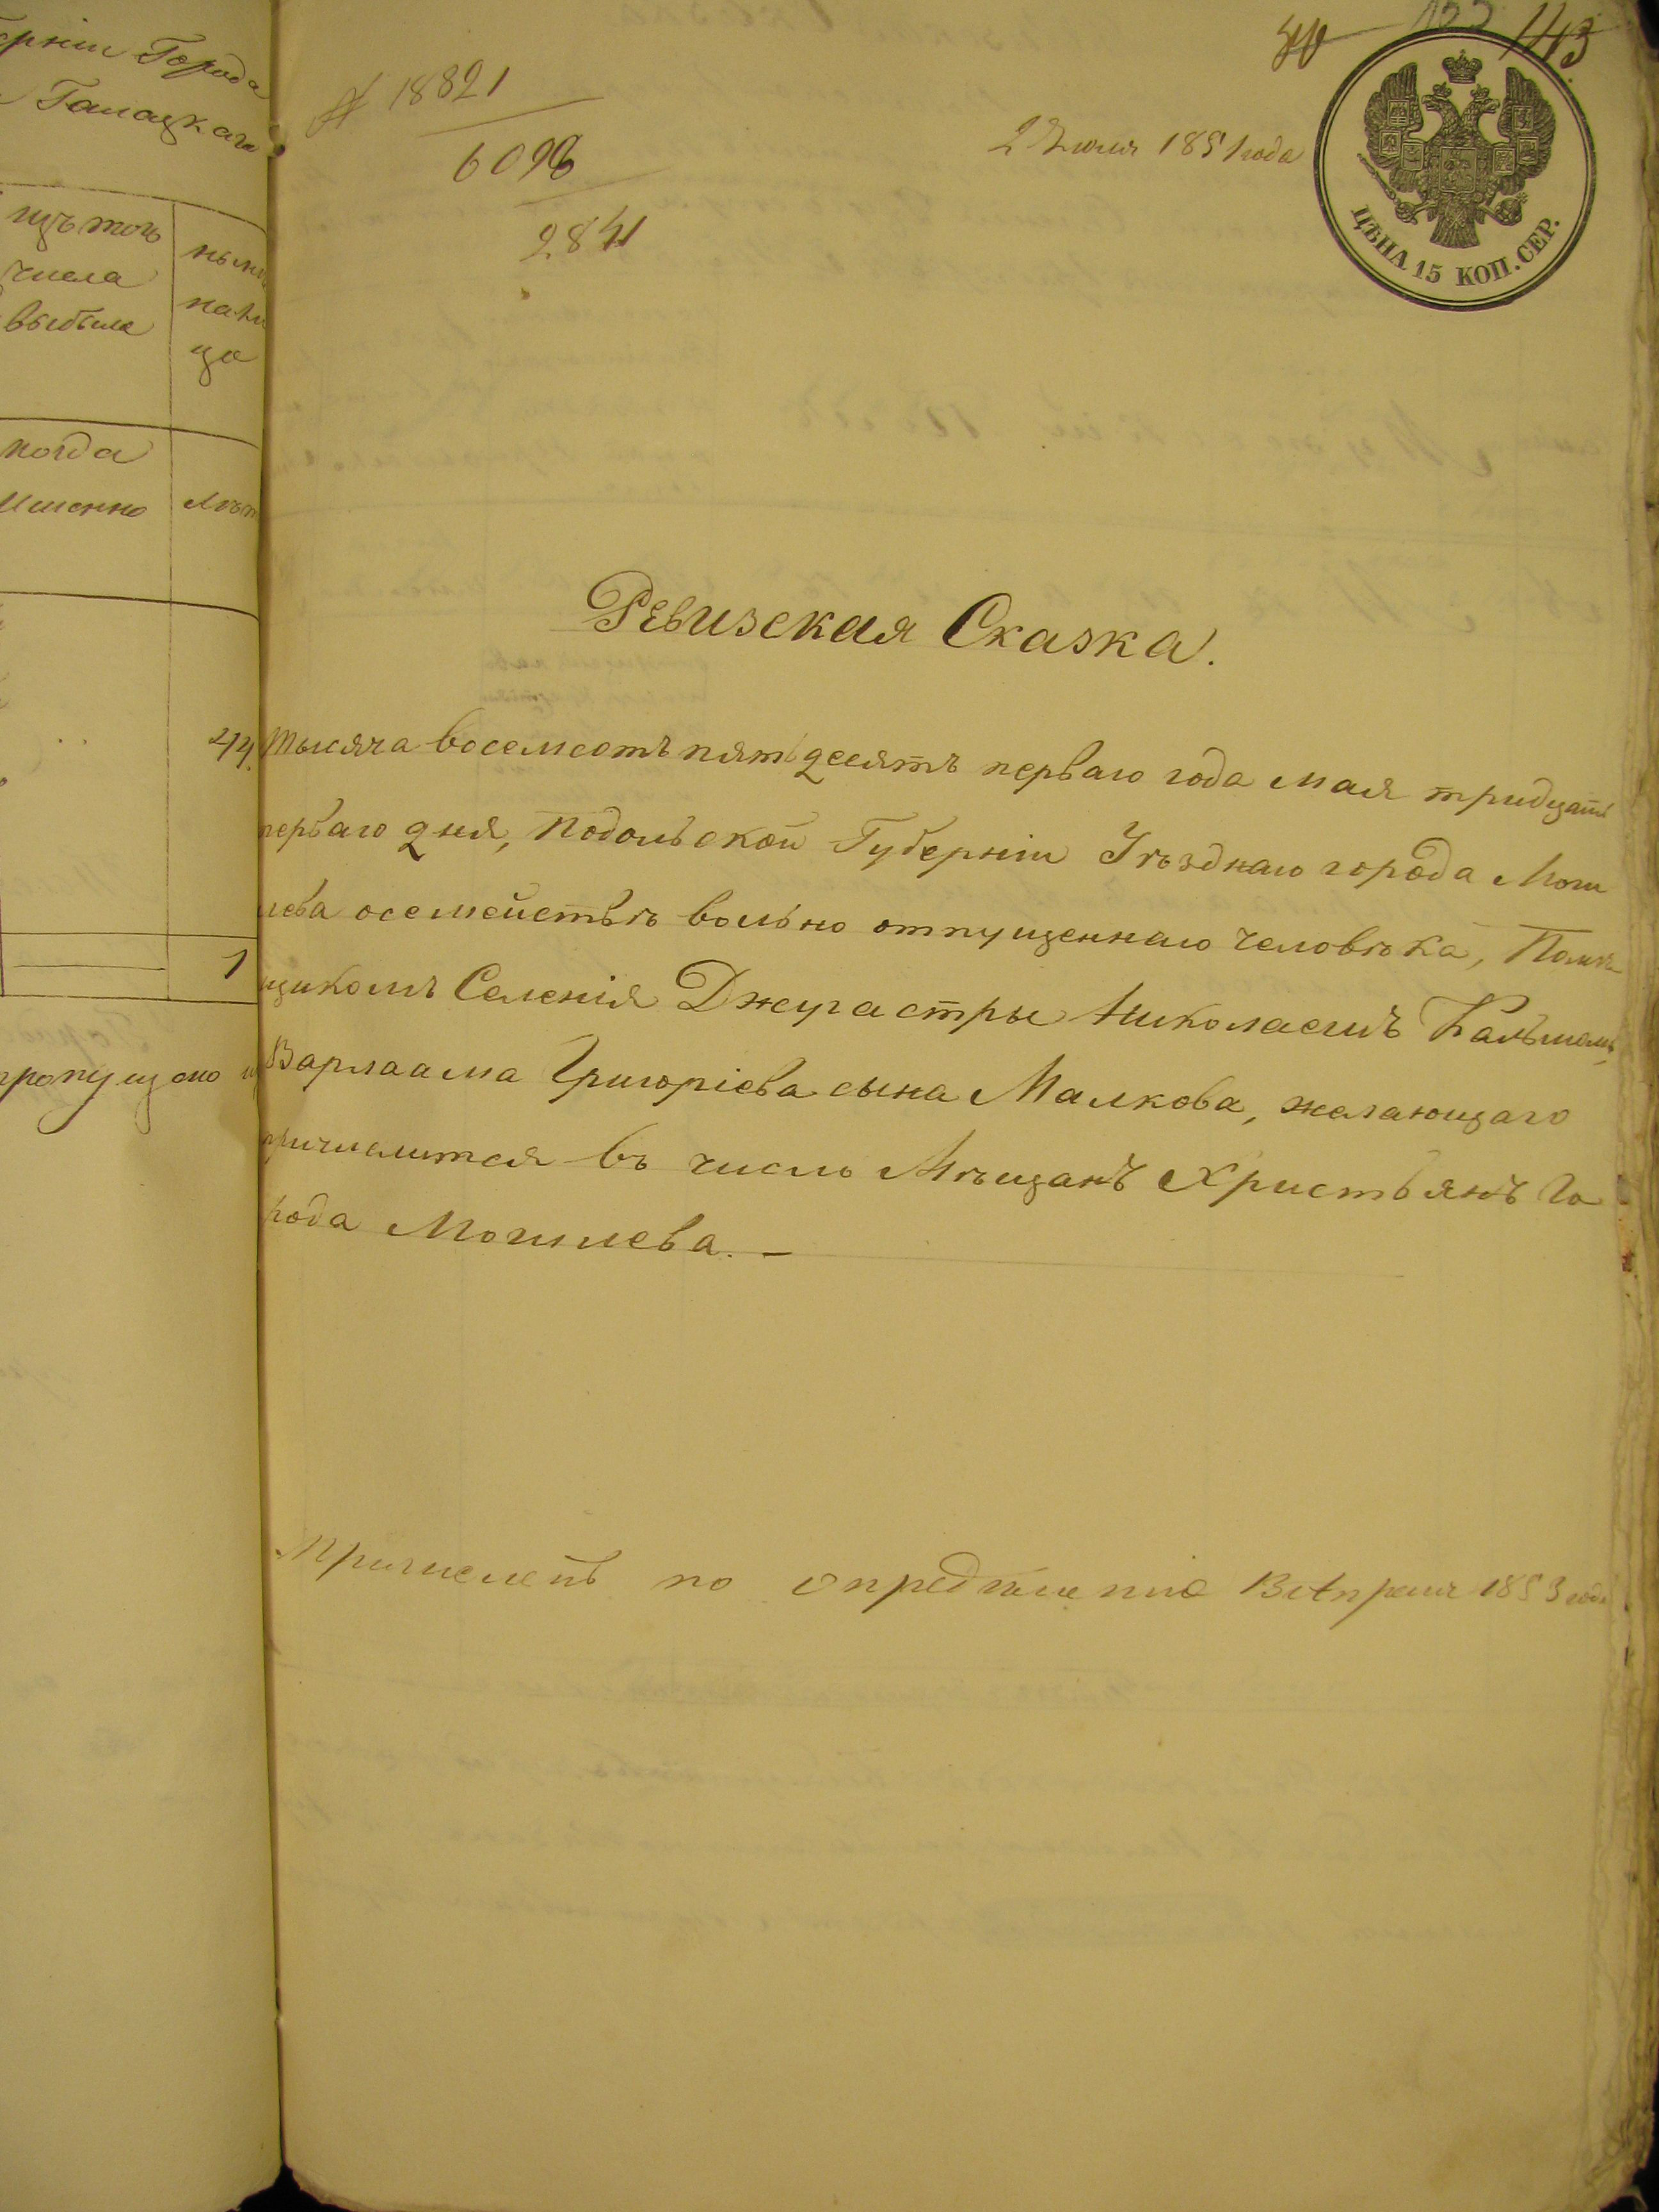 ерніи Города
Галацкаго
изъ того
числа
выбыло
нынѣ
на ли
цо
когда
Именно
Лѣт
44.
1
пропущено
№ 18821
6098
2841
2 Іюля 1851 года
143
ЦѢНА 15 КОП. СЕР.
Ревизская Сказка.
Тысяча восемсотъ пятьдесятъ перваго года мая тридцать
перваго дня, Подольской Губерніи Уѣзднаго города Моги
лева осемействѣ вольно отпущеннаго человѣка, Помѣ
щикомъ Селенія Джурастры Николаемъ
Варлаама Григоріева сына Малкова, желающаго
причислится въ число Мѣщанъ Христьянъ Го
рода Могилева. —
Причисленъ по опредѣленію 13 Апреля 1853 года